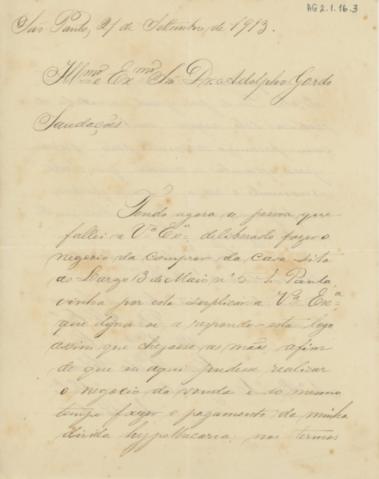 AG2.1.16.3
São Paulo, 21 de Setembro de 1913.
Illmo e Exmo Snr Dr. Adolpho Gordo
Saudações
Tendo agora a pessoa que
fallei a Va Exa deliberado fazer o
negocio da compra da casa sita
ao Largo 13 de Maio nº 5
venho por esta supplicar a Va Exa
que digna se a responder esta logo
assim que chegasse as mãos afim
de que eu aqui podesse realizar
o negocio da venda e ao mesmo
tempo fazer o pagamento da minha
divida hypothecaria, nos termos